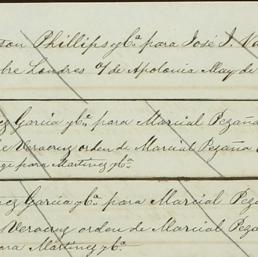 son Phillips y Ca. para José J. Va
bre Londres o/ de Apolonia May. de
ez Garcia y Ca. para Marcial Pezaña
e Veracruz orden de Marcial Pezaña
para Martinez y Ca.
nez Garcia y Ca. para Marcial Pez
Veracruz orden de Marcial Peza
ara Martinez y Ca.